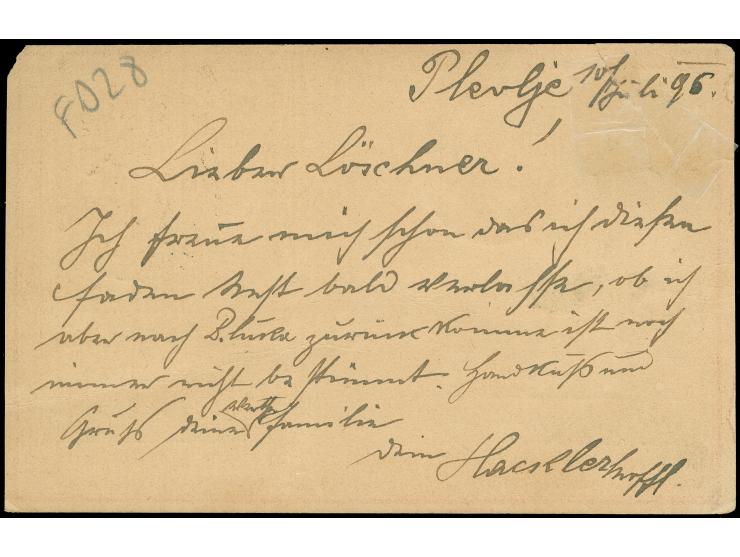 FD28
Plevlje 10/Juli 96.
Lieber Löschner!
Ich freue mich schon das ich diesen
faden Nest bald verlasse, ob ich
aber nach B.luka zurück komme ist noch
immer nicht bestimmt. Handkuß und
Gruß deine werthe Familie
dein Hackler